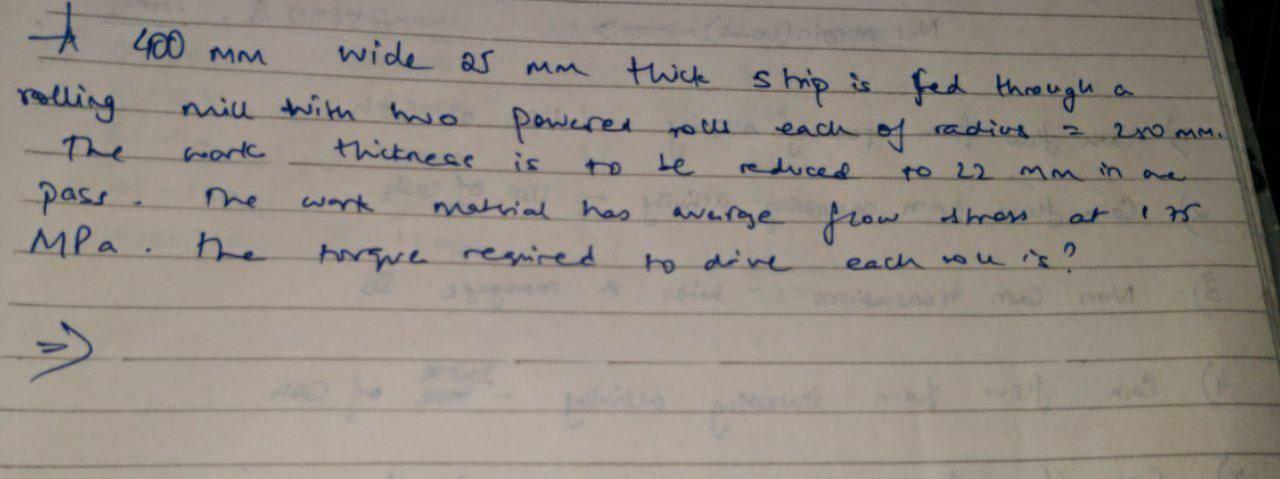 A 400 mm wide 25 mm thick strip is fed through a
rolling mill with two powered rolls each of radius = 250 mm.
The work thickness is to be reduced to 22 mm in one
pass. The work material has average flow stress at 175
MPa. The torque required to drive each roll is?
=>